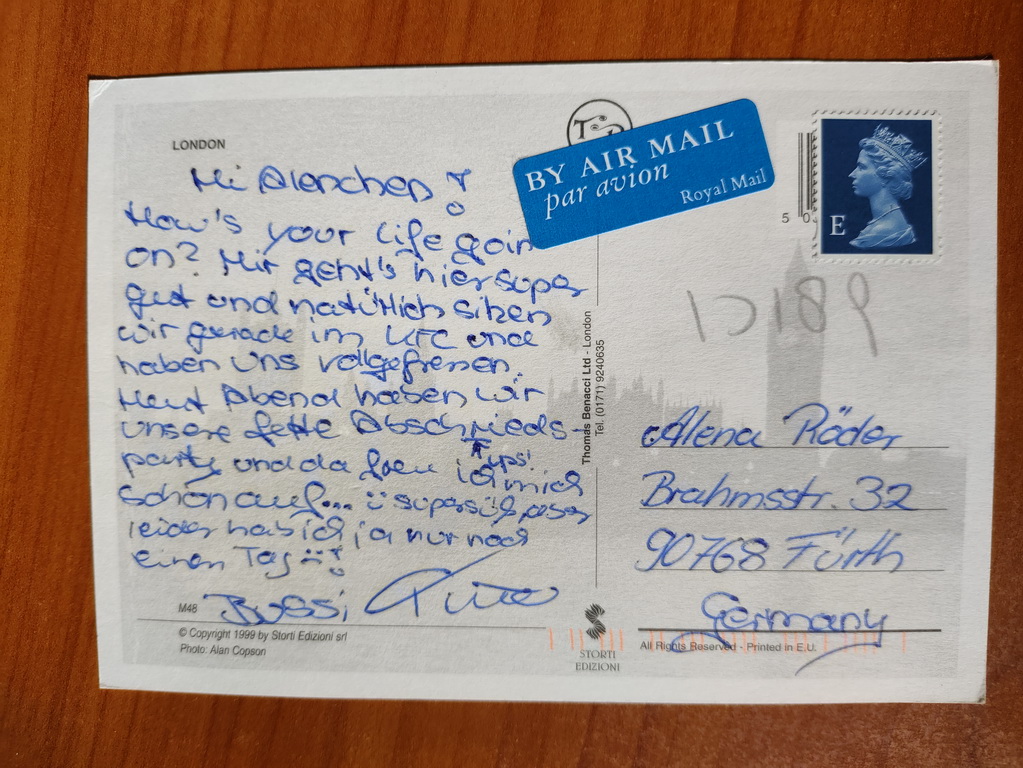 LONDON
Hi Alenchen!
How's your life goin
on? Mir geht's hier super
gut und natürlich sitzen
wir gerade im KFC und
haben uns vollgefressen.
Heut Abend haben wir
unsere fette Abschieds-
party und da freu ich mich
ups!
schon auf... supersüß, aber
leider hab ich ja nur noch
einen Tag !
Bussi,
M48
© Copyright 1999 by Storti Edizioni srl
Photo: Alan Copson
BY AIR MAIL
par avion
Royal Mail
5 0
E
Thomas Benacci Ltd - London
Tel. (0171) 9240635
Alena Röder
Brahmsstr. 32
90768 Fürth
Germany
STORTI
EDIZIONI
All Rights Reserved - Printed in E.U.